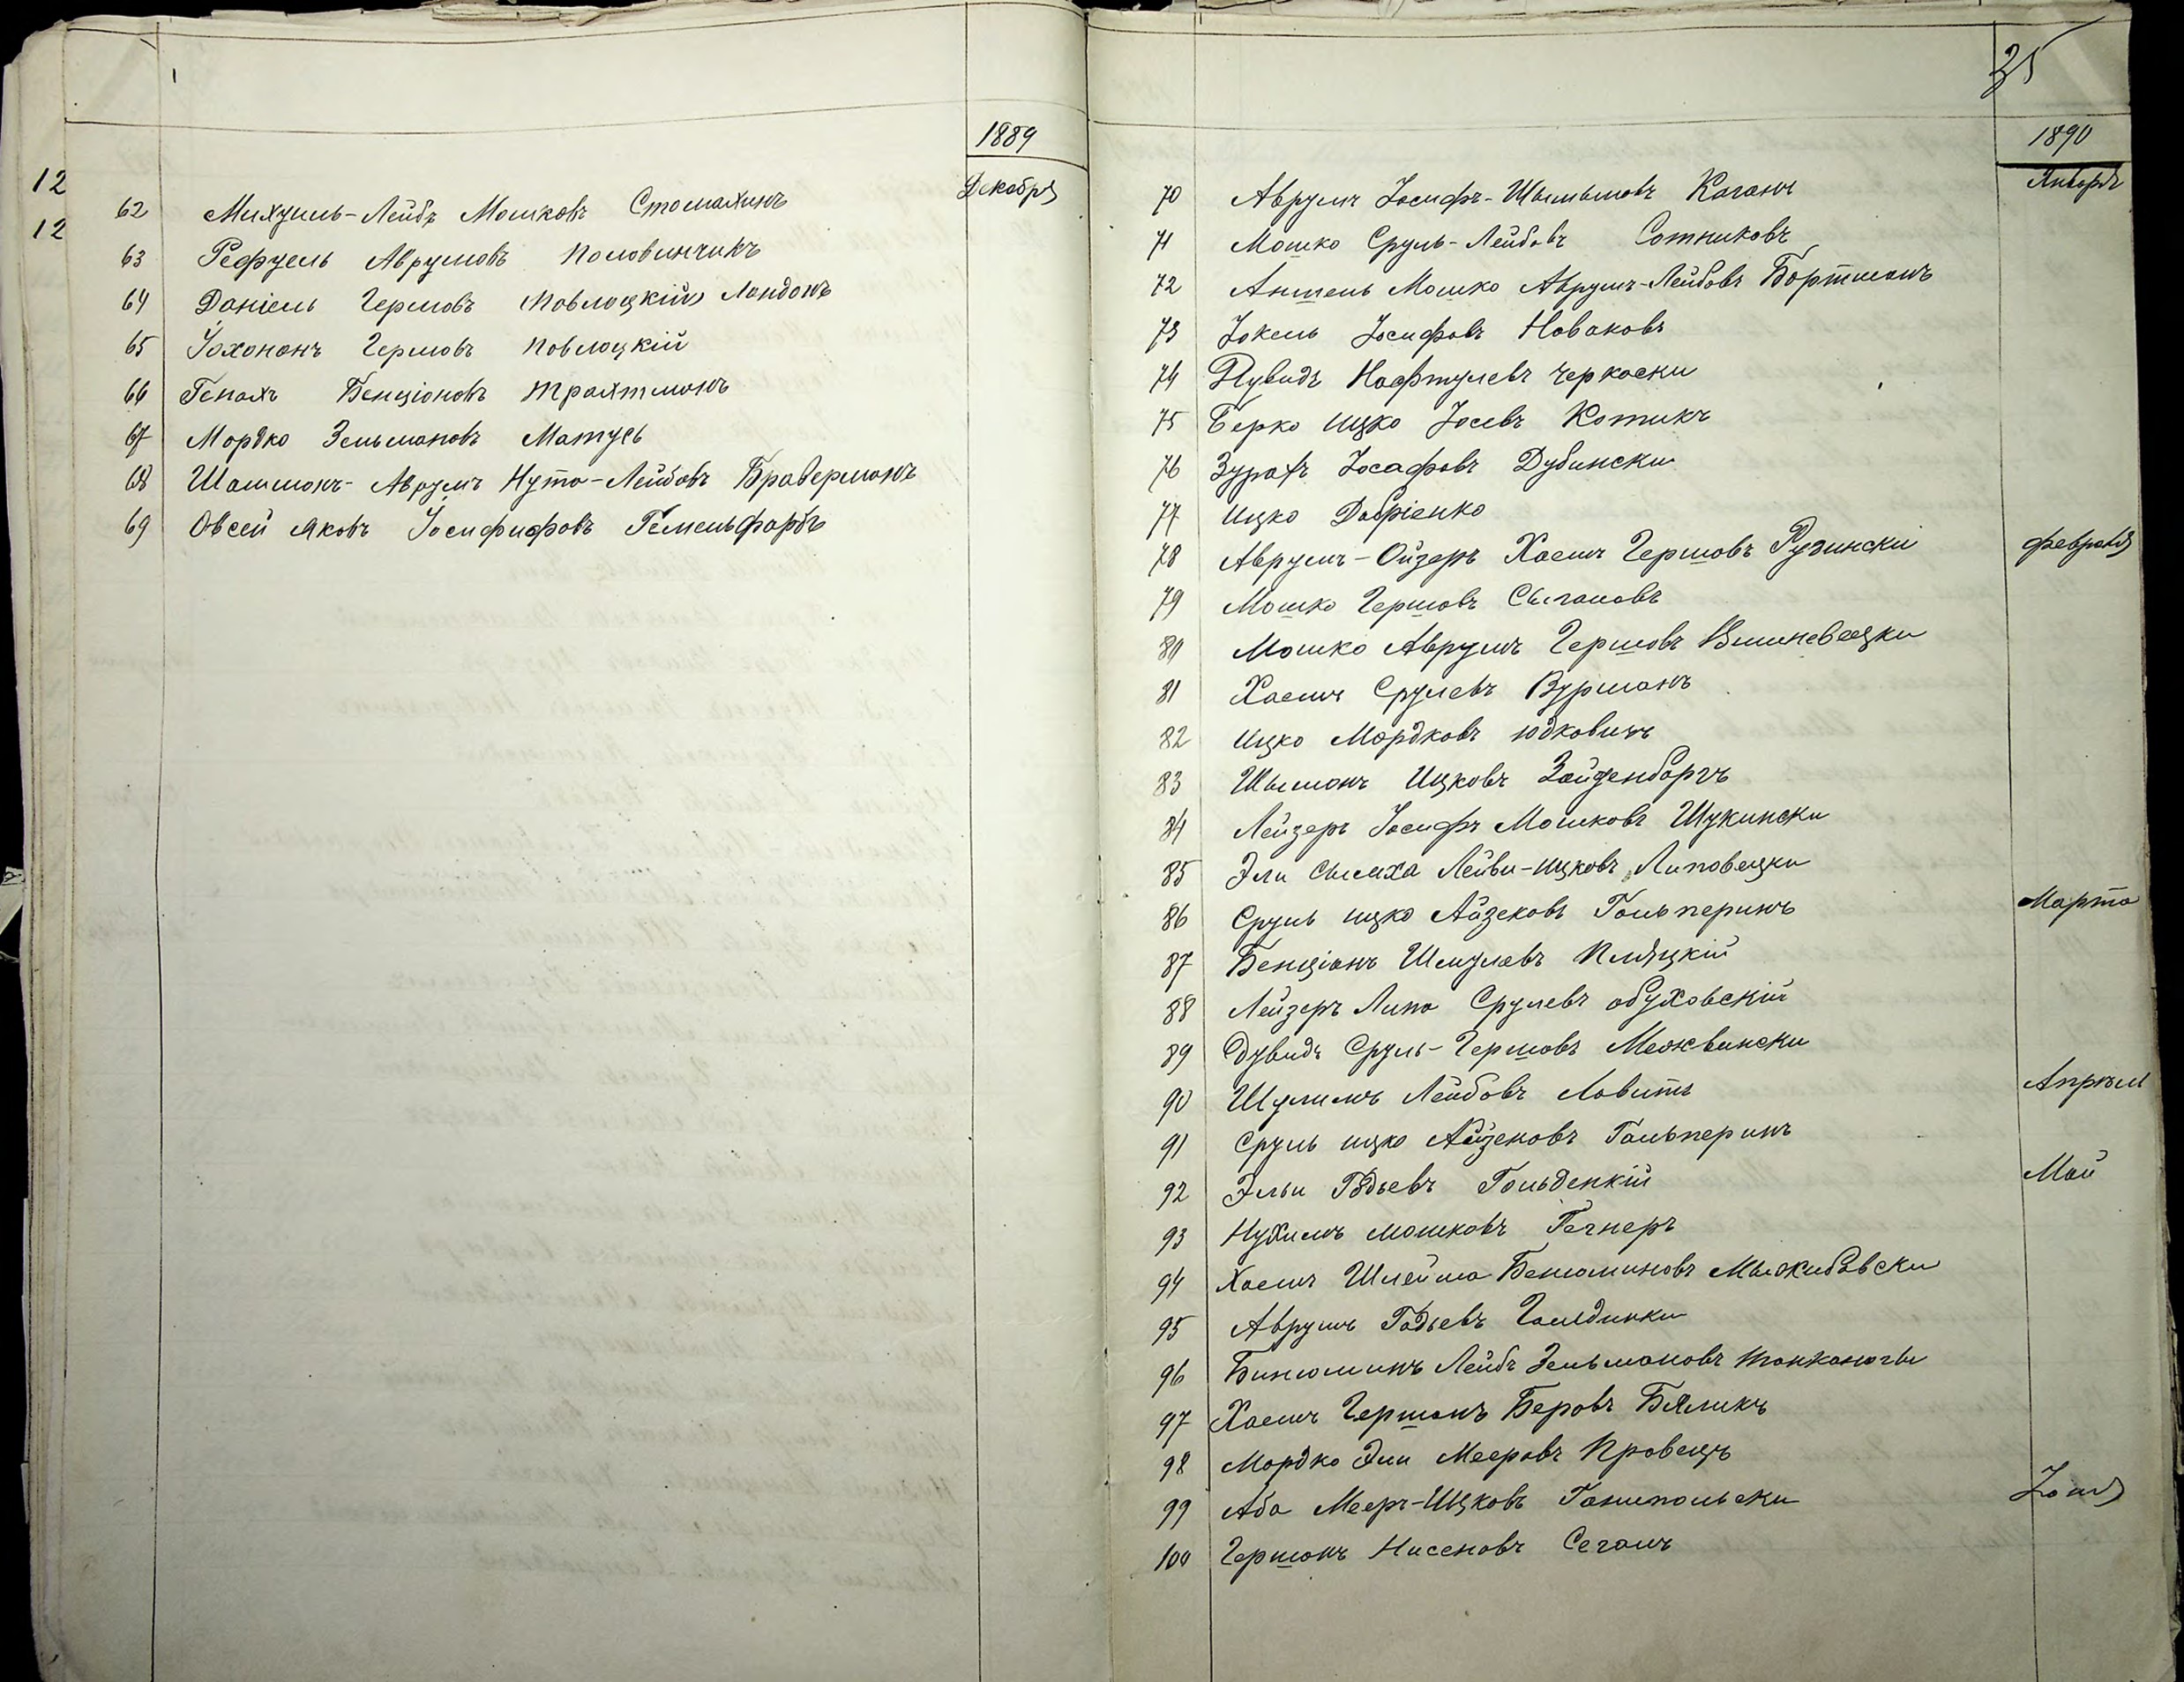 1889
Декабря
12
12
62 Михуиль-Лейбъ Мошковъ Стомахинъ
63 Рефуель Аврумовъ Половинчикъ
64 Даніель Гершовъ Повлоцкій Ландонъ
65 Іохононъ Гершовъ Повлоцкій
66 Генахъ Бенціоновъ Трахтмонъ
67 Мордко Зельмановъ Матусъ
68 Шалимонъ-Аврумъ Нута-Лейбовъ Браверманъ
69 Овсей Яковъ Іосифифовъ Гемельфарбъ
35
1890
Январь
70 Аврумъ Іосифъ-Шымымовъ Каганъ
71 Мошко Сруль-Лейбовъ Сотниковъ
72 Аншель Мошко Аврумъ-Лейбовъ Бортманъ
73 Іокель Іосифовъ Новаковъ
74 Дувидъ Нафтулевъ Черкаски
75 Берко Ицко Іосевъ Котикъ
76 Іосафовъ Дубински
77 Ицко Добріенко
78 Аврумъ-Ойзеръ Хаемъ Гершовъ Ружински
Февраля
79 Мошко Гершовъ
80 Мошко Аврумъ Гершовъ Вишневецки
81 Хаемъ Срулевъ Вурманъ
82 Ицко Мордковъ Юдковичъ
83 Шымонъ Ицковъ Зайденбаргъ
84 Лейзеръ Іосифъ Мошковъ Щукински
85 Эли Сымха Лейви-Ицковъ Липовецки
86 Сруль Ицко Айзековъ Гольперинъ
Марта
87 Бенціонъ Шмулевъ
88 Лейзеръ Липа Срулевъ Обуховскій
89 Дувидъ Сруль-Гершовъ Межвински
90 Шулимъ Лейбовъ Ловитъ
Апрѣль
91 Сруль Ицко Айзековъ Гальперинъ
92 Эльи Гдьевъ Гольденкій
Май
93 Нухимъ Мошковъ Гегнеръ
94 Хаемъ Шлейма Бенюминовъ Мыжибовски
95 Аврумъ Гадьевъ Голдинки
96 Бинюминъ Лейбъ Зельмановъ
97 Хаемъ Гершонъ Беровъ Бяликъ
98 Мордко Эли Мееровъ Кравецъ
99 Аба Мееръ-Ицковъ Ганипольски
100 Гершонъ Нисеновъ Сегалъ